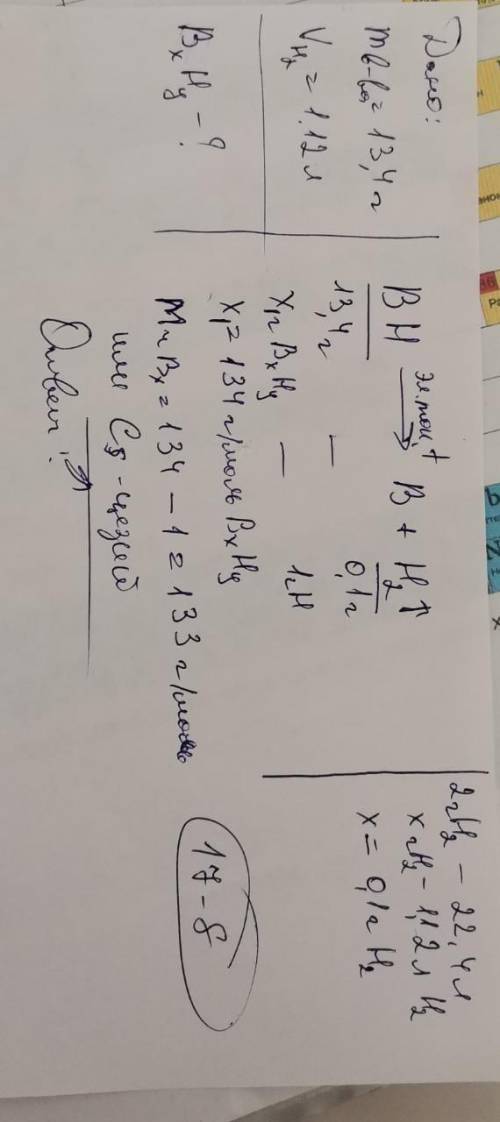 Дано:
m в-ва = 13,4 г
V H₂ = 1.12 л
BₓHᵧ - ?
BH эл.ток, t → B + H₂↑
13,4 г — 0,1 г
X₁ г BₓHᵧ — 1 г H
X₁ = 134 г/моль BₓHᵧ
Mr Bₓ = 134 - 1 = 133 г/моль
или Cs - цезий
Ответ: ↗
2 г H₂ — 22,4 л
x г H₂ - 1,12 л H₂
x = 0,1 г H₂
17-8